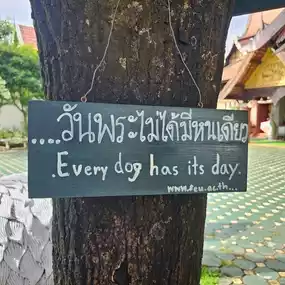 ....วันพระไม่ได้มีหนเดียว
.Every dog has its day.
www.feu.ac.th...